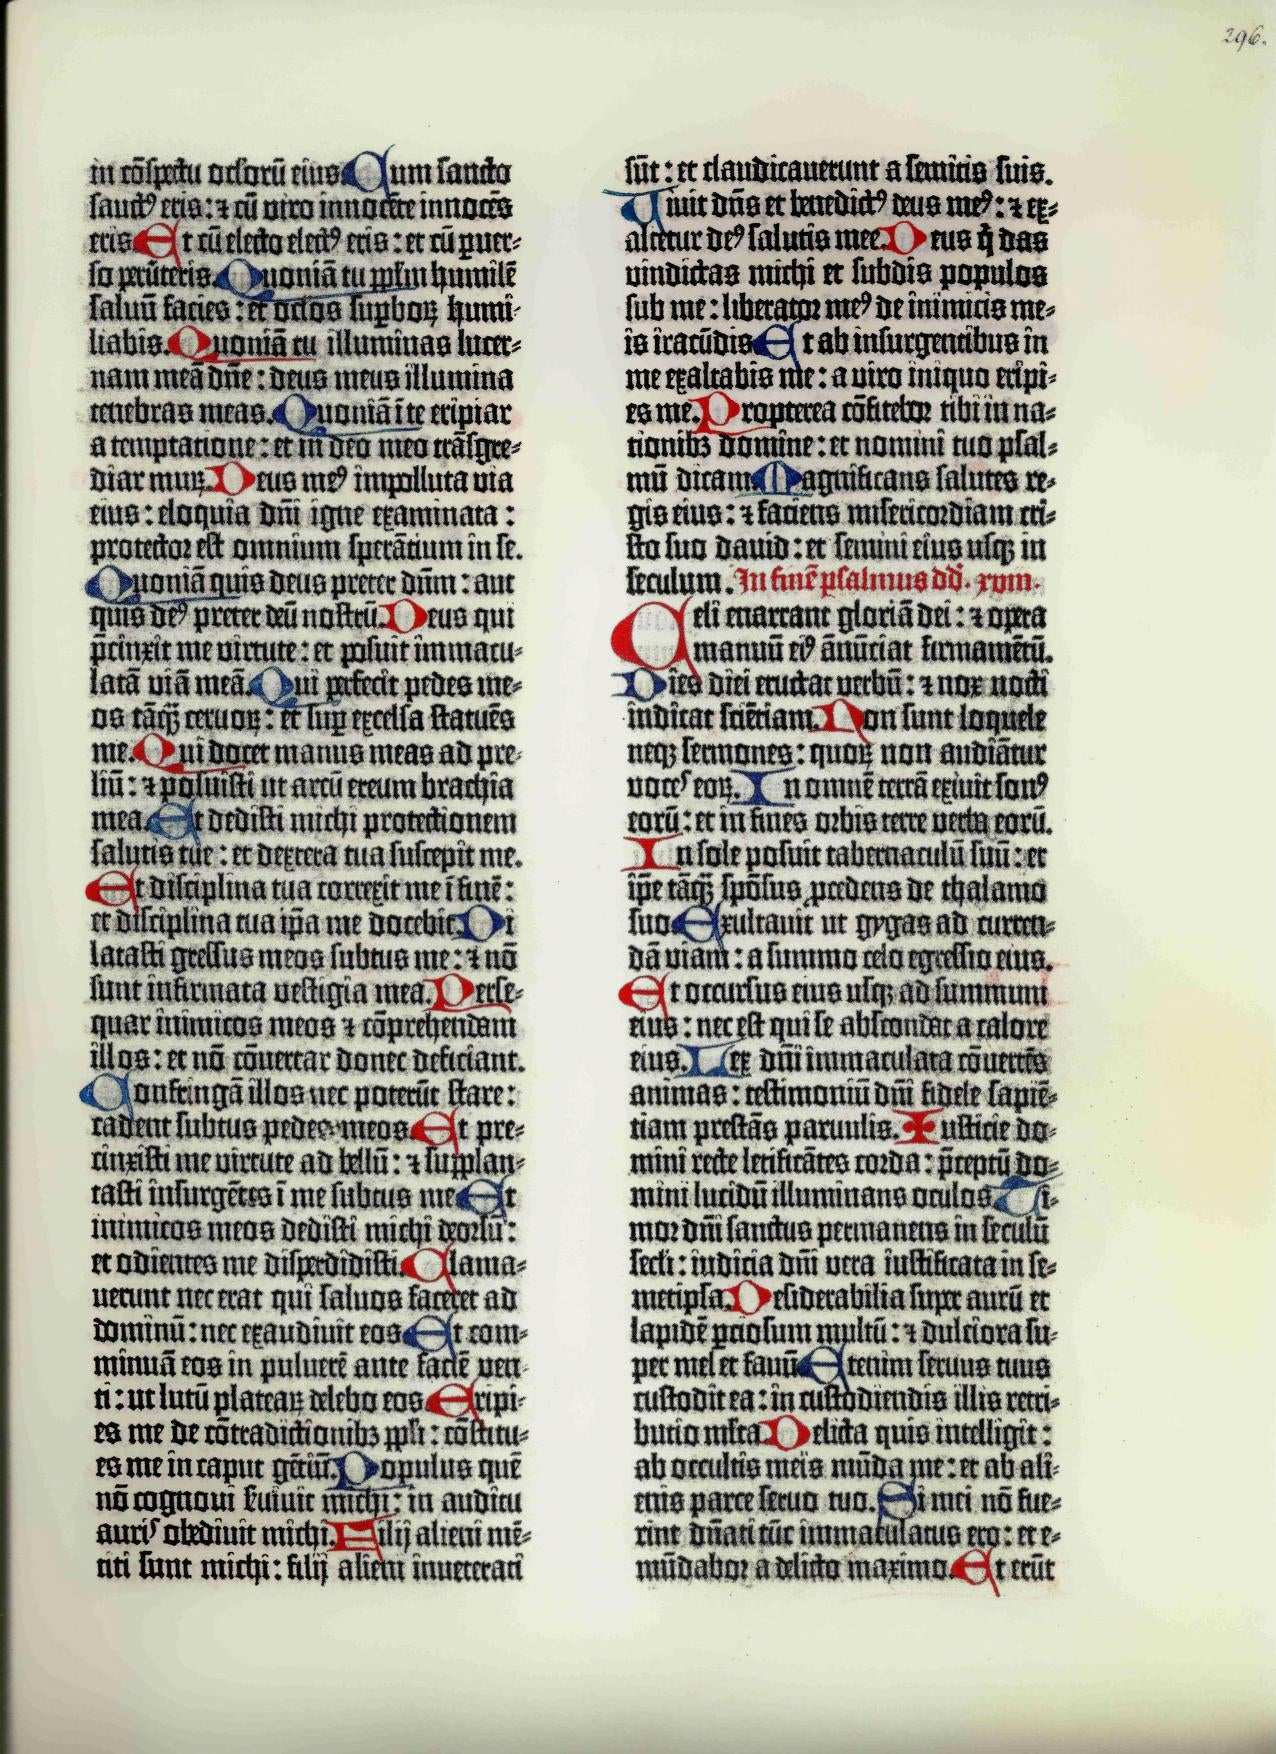 296.
in cõspectu oculorũ eius. Cum sancto
sanctꝰ eris: ⁊ cũ viro innocẽte innocẽs
eris. Et cũ electo electꝰ eris: et cũ ꝑuer-
so ꝑuerteris. Quoniã tu ppl̃m humilẽ
saluũ facies: et oculos suꝑboꝝ humi-
liabis. Quoniã tu illuminas lucer-
nam meã dñe: deus meus illumina
tenebras meas. Quoniã ĩ te eripiar
a temptatione: et in deo meo trãsgre-
diar muꝝ. Deus meꝰ impolluta via
eius: eloquia dñi igne examinata:
protector est omnium sperãtium in se.
Quoniã quis deus preter dñm: aut
quis deꝰ preter deũ nostrũ. Deus qui
p̃cinxit me virtute: et posuit immacu-
latã viã meã. Qui ꝑfecit pedes me-
os tãqꝫ ceruoꝝ: et suꝑ excelsa statuẽs
me. Qui docet manus meas ad pre-
liũ: ⁊ posuisti ut arcũ ereum brachia
mea. Et dedisti michi protectionem
salutis tue: et dextera tua suscepit me.
Et disciplina tua correxit me ĩ finẽ:
et disciplina tua ip̃a me docebit. Di
latasti gressus meos subtus me: ⁊ nõ
sunt infirmata vestigia mea. Perse-
quar inimicos meos ⁊ cõprehendam
illos: et nõ cõuertar donec deficiant.
Confringã illos nec poterũt stare:
cadent subtus pedes meos. Et pre-
cinxisti me virtute ad bellũ: ⁊ suꝑplan-
tasti insurgẽtes ĩ me subtus me. Et
inimicos meos dedisti michi dorsũ:
et odientes me disperdidisti. Clama-
uerunt nec erat qui saluos faceret ad
dominũ: nec exaudiuit eos. Et com-
minuã eos in puluerẽ ante faciẽ ven-
ti: ut lutũ plateaꝝ delebo eos. Eripi-
es me de cõtradictionibꝫ pp̃li: cõstitu-
es me in caput gẽtiũ. Populus quẽ
nõ cognoui seruiuit michi: in auditu
auris obediuit michi. Filij alieni mẽ-
titi sunt michi: filij alieni inueterati
sũt: et claudicauerunt a semitis suis.
Viuit dñs et benedictꝰ deus meꝰ: ⁊ ex-
altetur deꝰ salutis mee. Deus q̃ das
vindictas michi et subdis populos
sub me: liberator meꝰ de inimicis me-
is iracũdis. Et ab insurgentibus in
me exaltabis me: a viro iniquo eripi-
es me. Propterea cõfitebor tibi in na-
tionibꝫ domine: et nomini tuo psal-
mũ dicam. Magnificans salutes re-
gis eius: ⁊ faciens misericordiam cri-
sto suo dauid: et semini eius usqꝫ in
seculum. In finẽ psalmus dd̃. xviii.
Celi enarrant gloriã dei: ⁊ opera
manuũ eiꝰ ãnũciat firmamẽtũ.
Dies diei eructat verbũ: ⁊ nox nocti
indicat sciẽtiam. Non sunt loquele
neqꝫ sermones: quoꝝ non audiãtur
voces eoꝝ. In omnẽ terrã exiuit sonꝰ
eorũ: et in fines orbis terre verba eorũ.
In sole posuit tabernaculũ suũ: et
ip̃e tãqꝫ spõsus ꝓcedens de thalamo
suo. Exultauit ut gygas ad curren-
dã viam: a summo celo egressio eius.
Et occursus eius usqꝫ ad summum
eius: nec est qui se abscondat a calore
eius. Lex dñi immaculata cõuertẽs
animas: testimoniũ dñi fidele sapiẽ-
tiam prestãs paruulis. Iusticie do-
mini recte letificãtes corda: p̃ceptũ do-
mini lucidũ illuminans oculos. Ti-
mor dñi sanctus permanens in seculũ
secl̃i: iudicia dñi vera iustificata in se-
metipsa. Desiderabilia super aurũ et
lapidẽ p̃ciosum multũ: ⁊ dulciora su-
per mel et fauũ. Etenim seruus tuus
custodit ea: in custodiendis illis retri-
butio mĩta. Delicta quis intelligit:
ab occultis meis mũda me: et ab ali-
enis parce seruo tuo. Si mei nõ fue-
rint dñati tũc immaculatus ero: et e-
mũdabor a delicto maximo. Et erũt